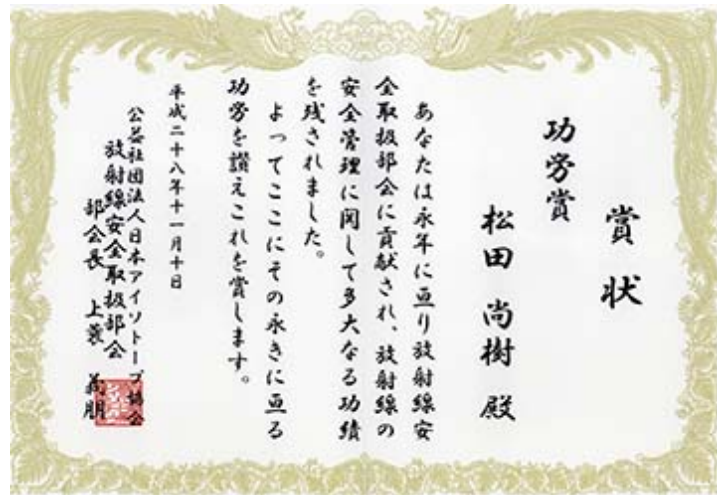 賞状
功労賞
松田 尚樹 殿
あなたは永年に亘り放射線安
全取扱部会に貢献され、放射線の
安全管理に関して多大なる功績
を残されました。
よってここにその永きに亘る
功労を讃えこれを賞します。
平成二十八年十一月十日
公益社団法人日本アイソトープ協会
放射線安全取扱部会
部会長 上蓑 義朋